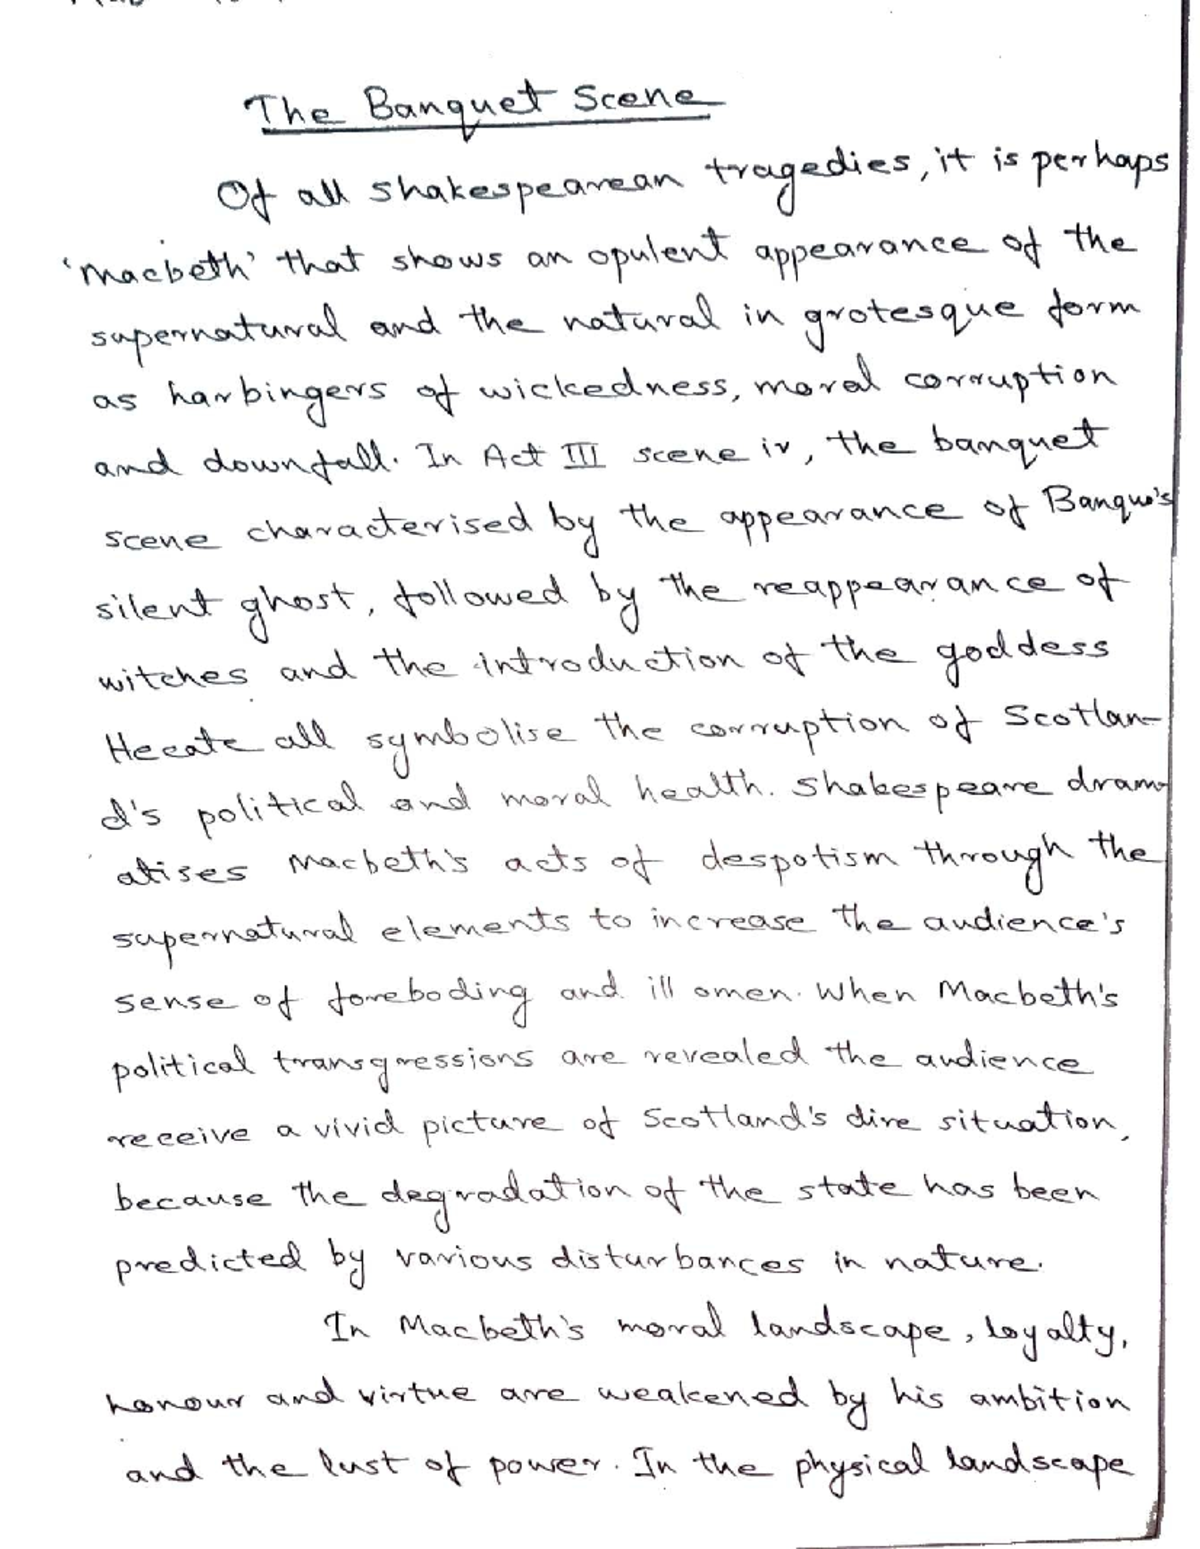 The Banquet Scene
Of all Shakespearean tragedies, it is perhaps
'Macbeth' that shows an opulent appearance of the
supernatural and the natural in grotesque form
as harbingers of wickedness, moral corruption
and downfall. In Act III scene iv, the banquet
scene characterised by the appearance of Banquo's
silent ghost, followed by the reappearance of
witches and the introduction of the goddess
Hecate all symbolise the corruption of Scotlan-
d's political and moral health. Shakespeare dram-
atises Macbeth's acts of despotism through the
supernatural elements to increase the audience's
sense of foreboding and ill omen. When Macbeth's
political transgressions are revealed the audience
receive a vivid picture of Scotland's dire situation,
because the degradation of the state has been
predicted by various disturbances in nature.
In Macbeth's moral landscape, loyalty,
honour and virtue are weakened by his ambition
and the lust of power. In the physical landscape